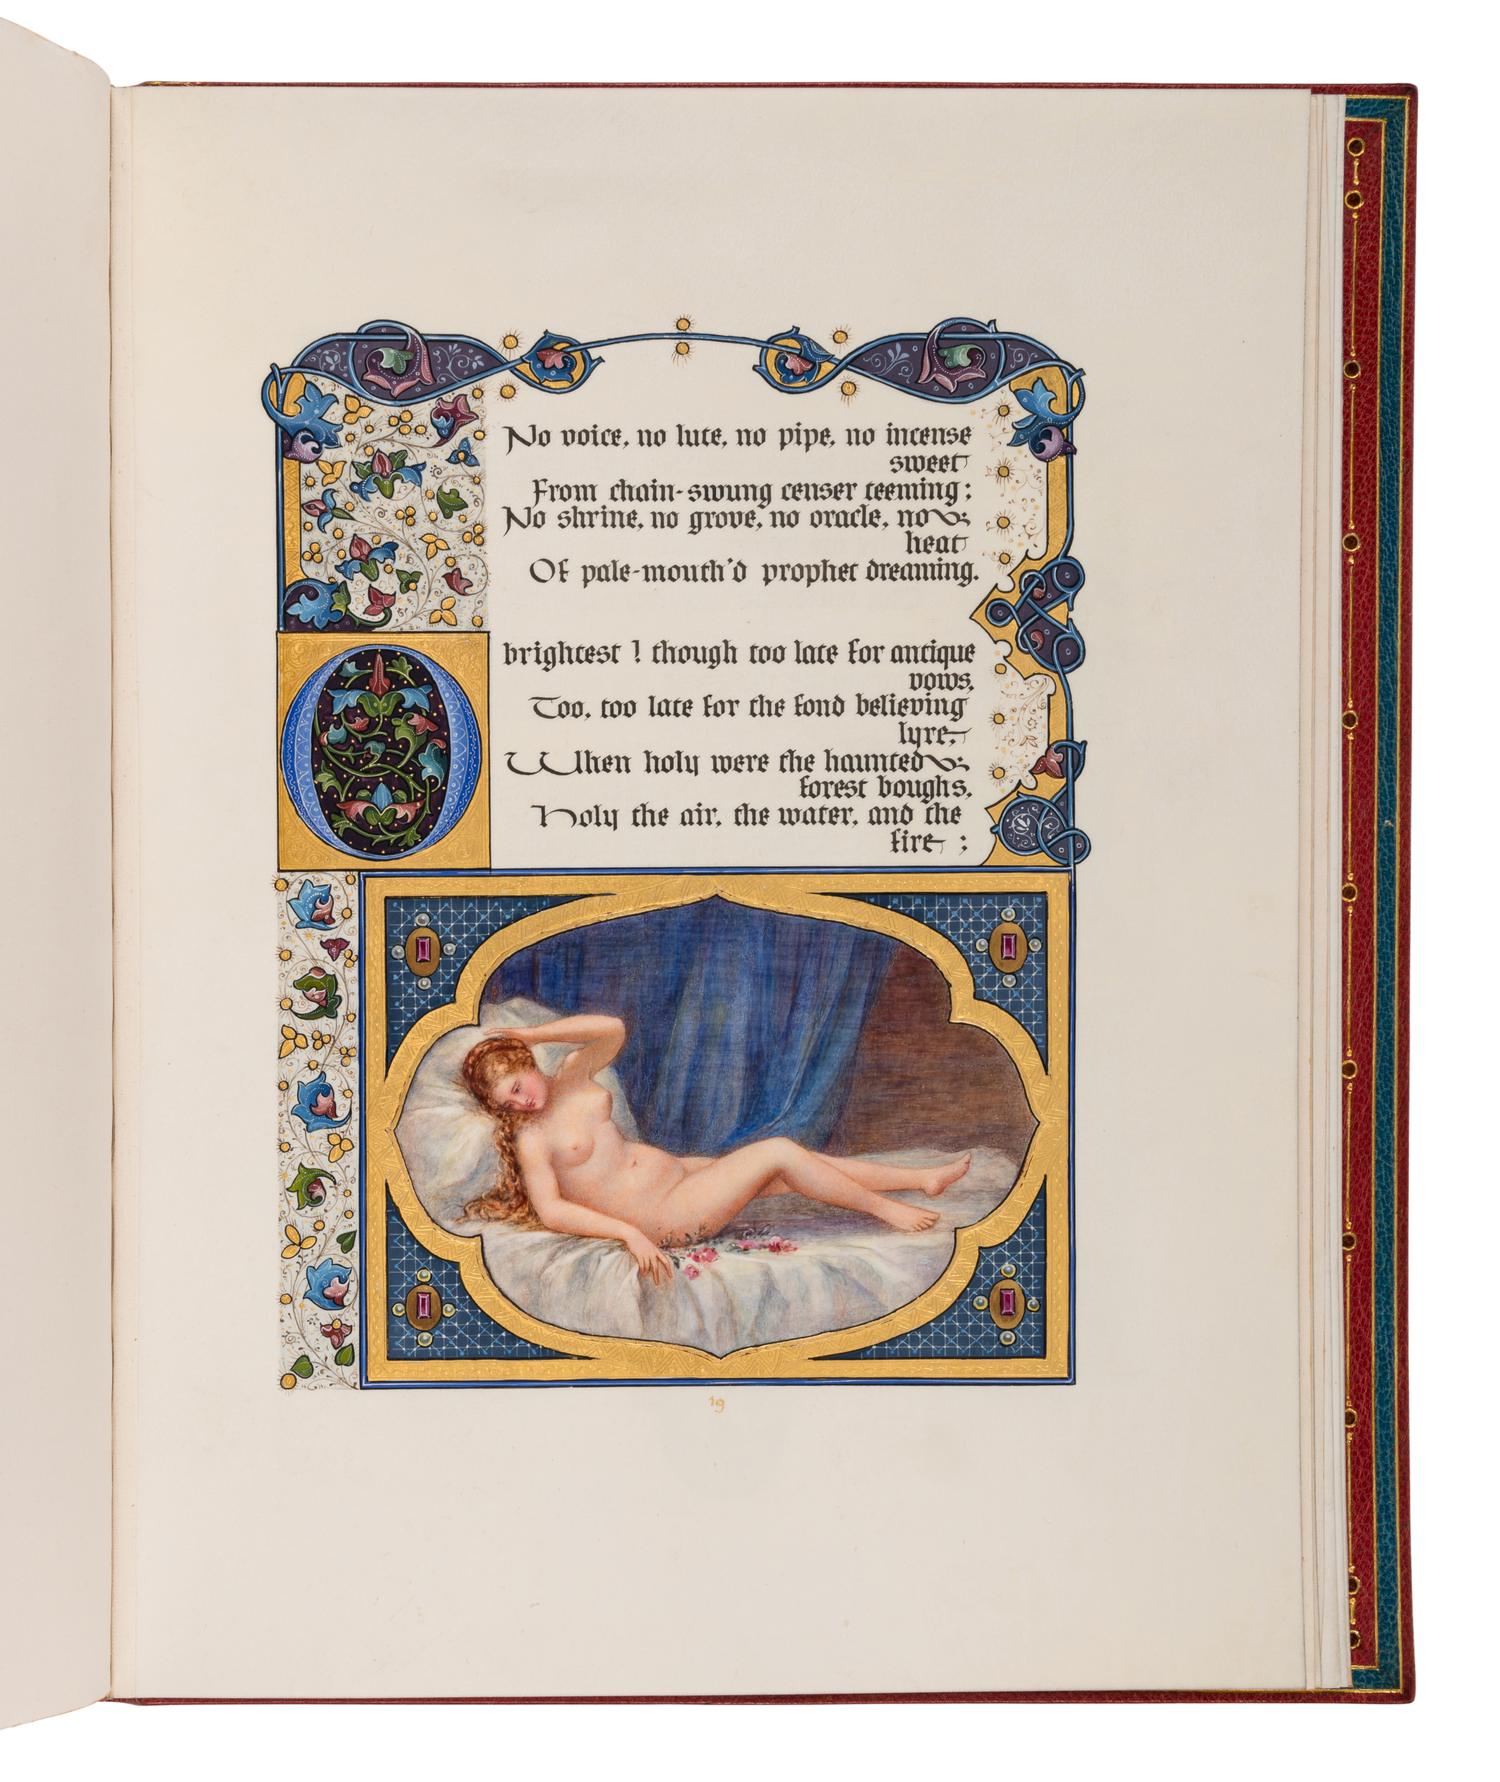 No voice, no lute, no pipe, no incense
sweet
From chain-swung censer teeming;
No shrine, no grove, no oracle, no
heat
Of pale-mouth'd prophet dreaming.
O brightest! though too late for antique
vows,
Too, too late for the fond believing
lyre,
When holy were the haunted
forest boughs,
Holy the air, the water, and the
fire;
19